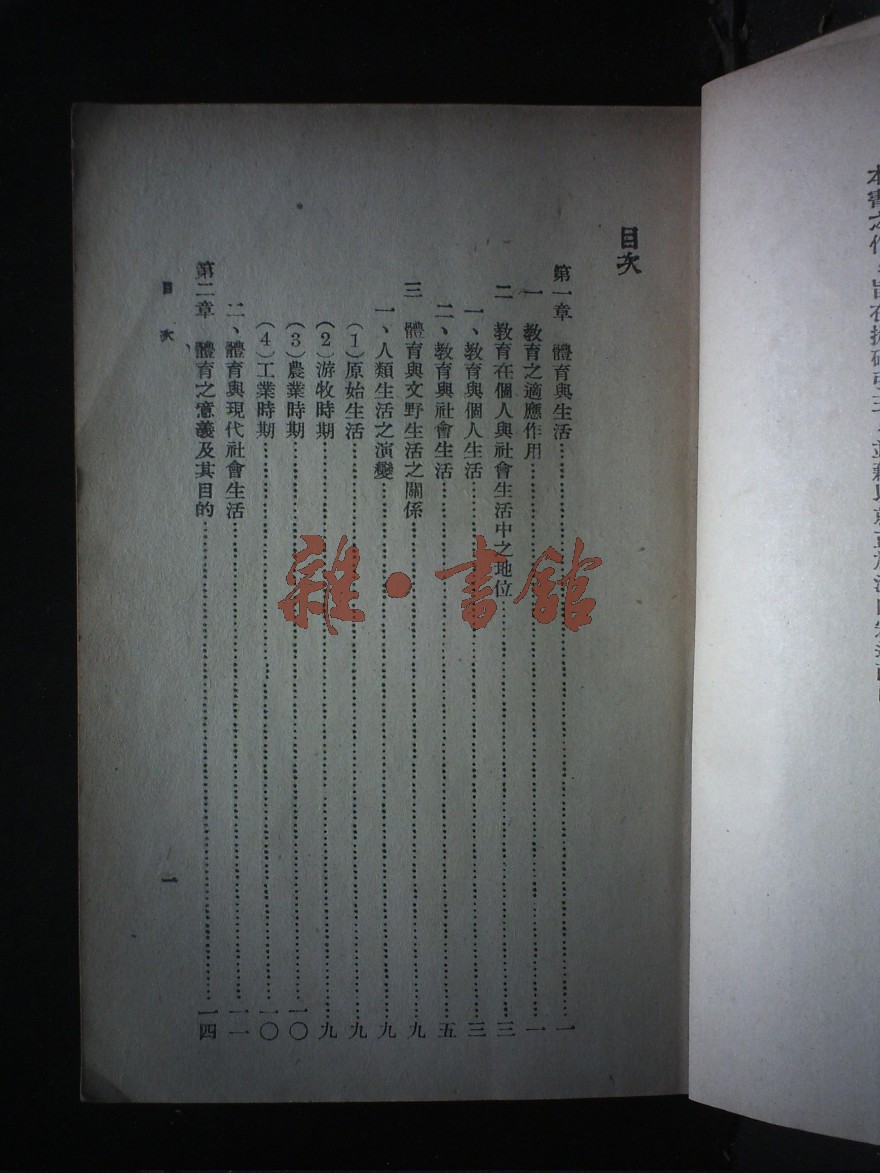 目次
第一章 體育與生活……一
一 教育之適應作用……一
二 教育在個人與社會生活中之地位……三
一、教育與個人生活……三
二、教育與社會生活……五
三 體育與文野生活之關係……九
一、人類生活之演變……九
(1)原始生活……九
(2)游牧時期……九
(3)農業時期……一〇
(4)工業時期……一〇
二、體育與現代社會生活……一一
第二章 體育之意義及其目的……一四
目次 一
雜·書館